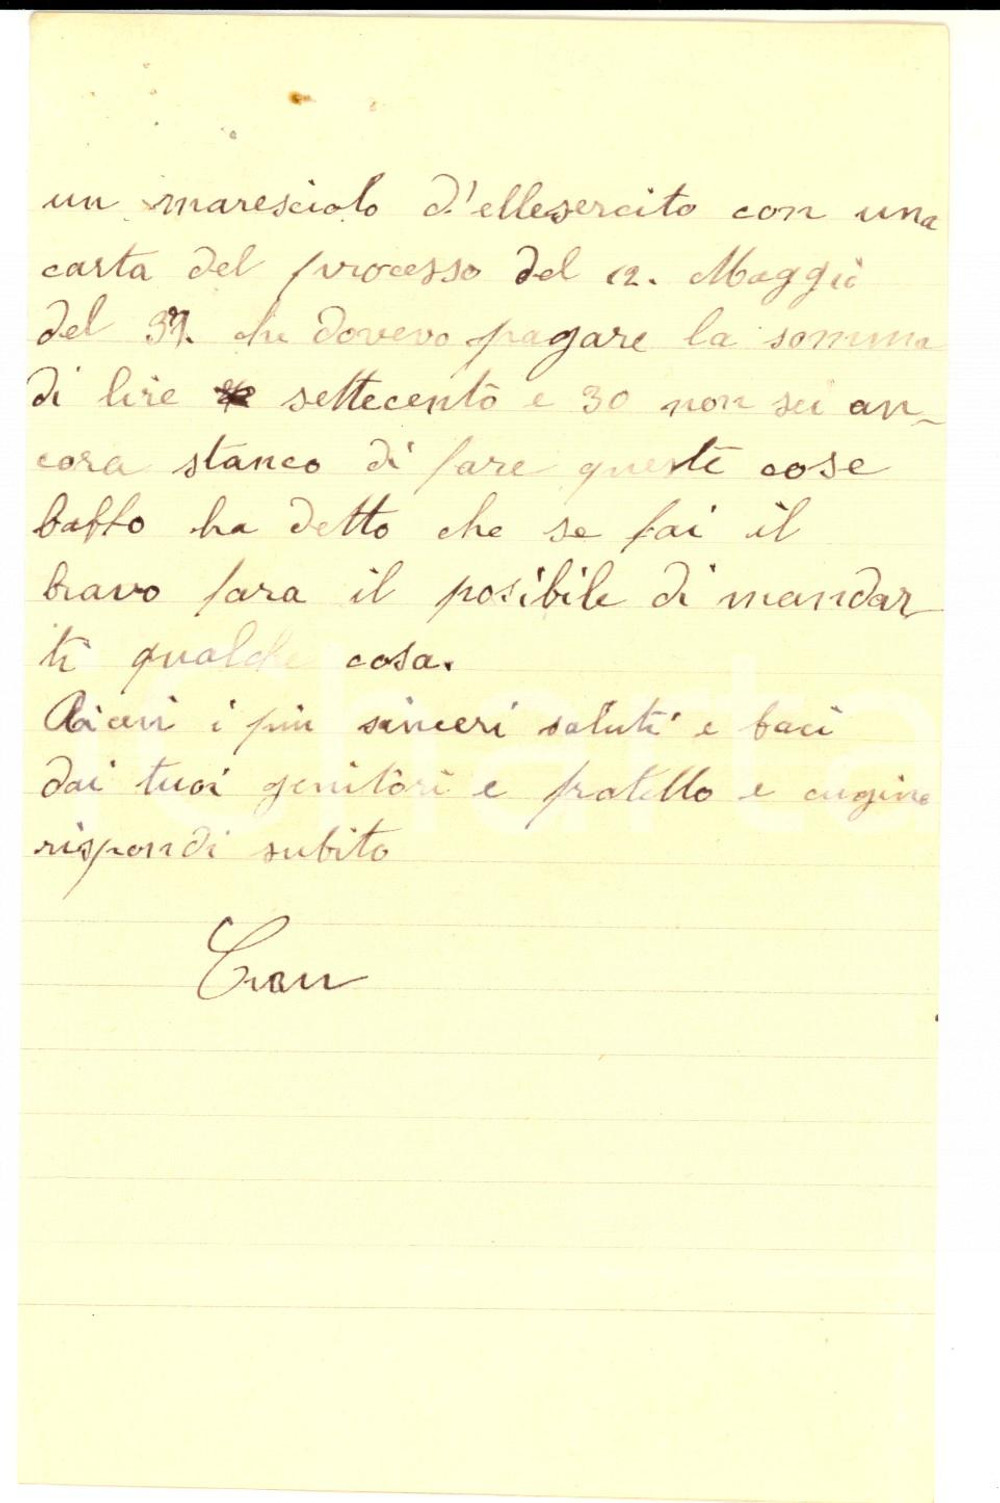 un maresciolo d'ellesercito con una
carta del processo del 12. Maggio
del 37. che dovevo pagare la somma
di lire settecento e 30 non sei an-
cora stanco di fare queste cose
babbo ha detto che se fai il
bravo fara il posibile di mandar
ti qualche cosa.
Ricevi i più sinceri saluti e baci
dai tuoi genitori e fratello e cugine
rispondi subito